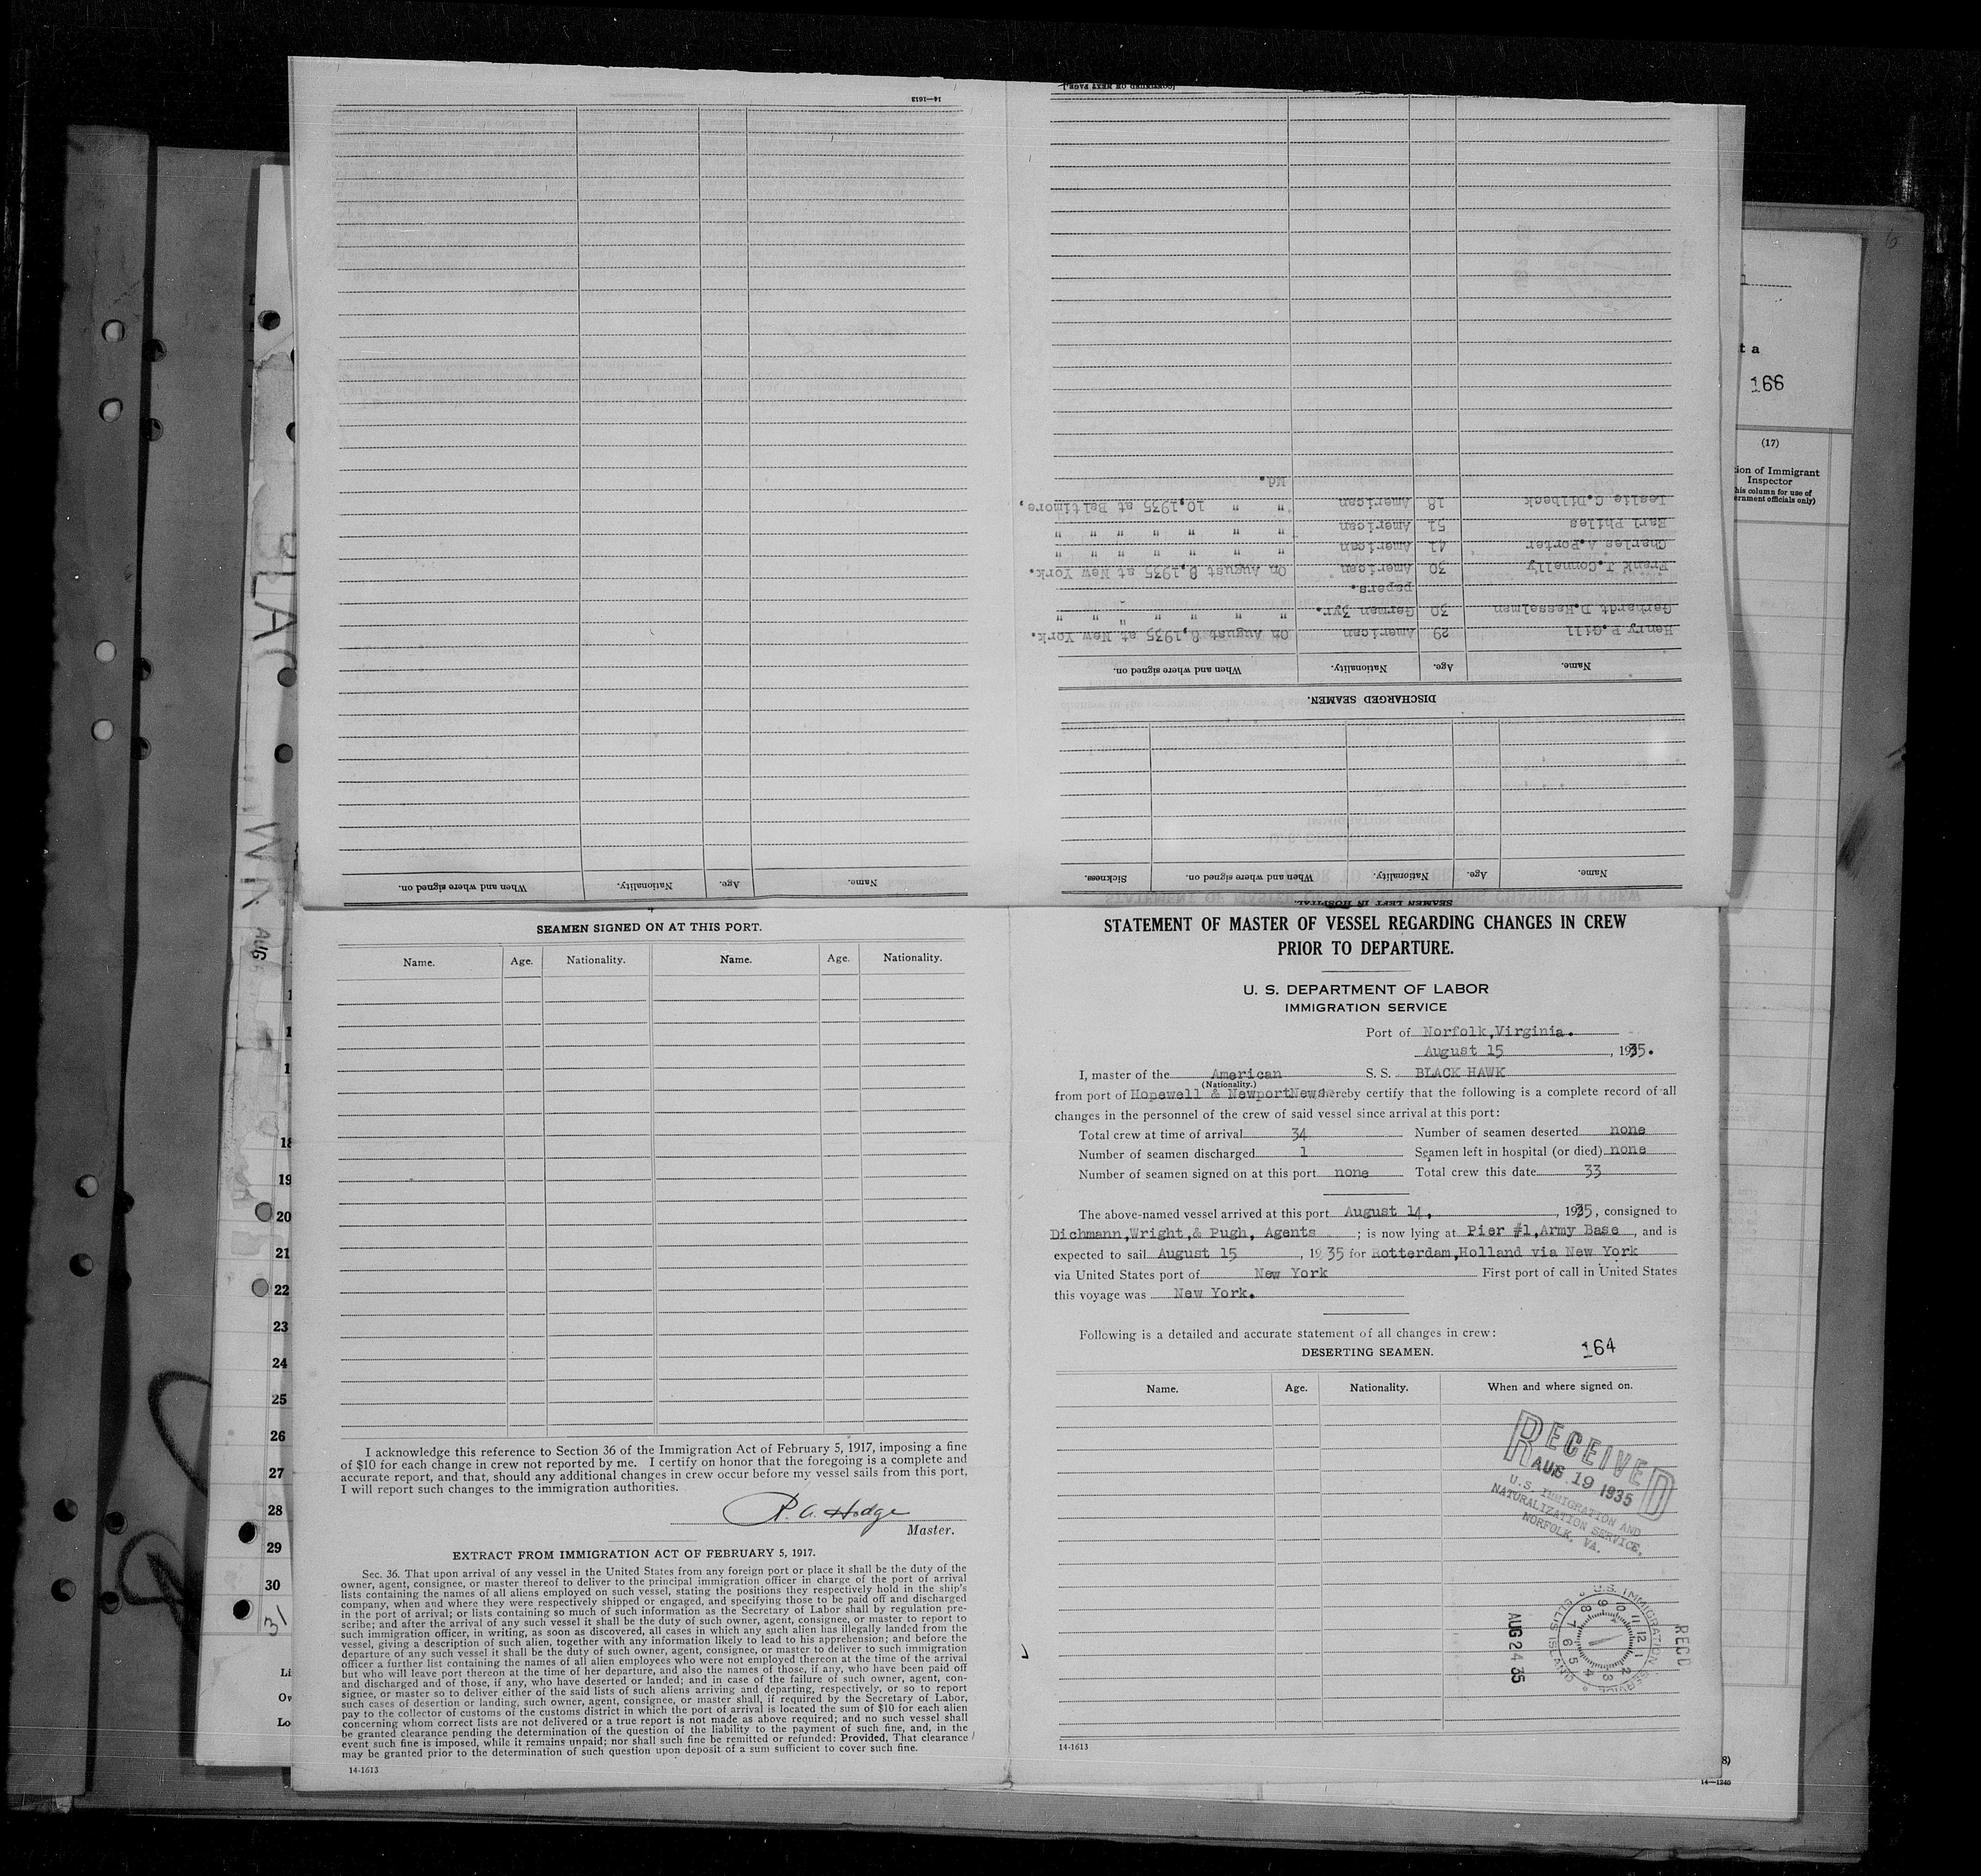 14—1613
(CONTINUED ON NEXT PAGE.)
Md.
Leslie C.Dilbeck 18 American " " 10,1935 at Baltimore,
Earl Philes 51 American " " " " " "
Charles A.Porter 41 American " " " " " "
Frank J.Connelly 30 American On August 8,1935 at New York.
papers.
Gerhardt D.Hesselman 30 German 3yr. " " " " " "
Henry P.Gill 29 American On August 8,1935 at New York.
Name. Age. Nationality. When and where signed on.
DISCHARGED SEAMEN.
Name. Age. Nationality. When and where signed on. Sickness.
SEAMEN LEFT IN HOSPITAL.
Name. Age. Nationality. When and where signed on.
SEAMEN SIGNED ON AT THIS PORT.
Name. Age. Nationality. Name. Age. Nationality.
I acknowledge this reference to Section 36 of the Immigration Act of February 5, 1917, imposing a fine
of $10 for each change in crew not reported by me. I certify on honor that the foregoing is a complete and
accurate report, and that, should any additional changes in crew occur before my vessel sails from this port,
I will report such changes to the immigration authorities.
R. A. Hodge
Master.
EXTRACT FROM IMMIGRATION ACT OF FEBRUARY 5, 1917.
Sec. 36. That upon arrival of any vessel in the United States from any foreign port or place it shall be the duty of the
owner, agent, consignee, or master thereof to deliver to the principal immigration officer in charge of the port of arrival
lists containing the names of all aliens employed on such vessel, stating the positions they respectively hold in the ship's
company, when and where they were respectively shipped or engaged, and specifying those to be paid off and discharged
in the port of arrival; or lists containing so much of such information as the Secretary of Labor shall by regulation pre-
scribe; and after the arrival of any such vessel it shall be the duty of such owner, agent, consignee, or master to report to
such immigration officer, in writing, as soon as discovered, all cases in which any such alien has illegally landed from the
vessel, giving a description of such alien, together with any information likely to lead to his apprehension; and before the
departure of any such vessel it shall be the duty of such owner, agent, consignee, or master to deliver to such immigration
officer a further list containing the names of all alien employees who were not employed thereon at the time of the arrival
but who will leave port thereon at the time of her departure, and also the names of those, if any, who have been paid off
and discharged and of those, if any, who have deserted or landed; and in case of the failure of such owner, agent, con-
signee, or master so to deliver either of the said lists of such aliens arriving and departing, respectively, or so to report
such cases of desertion or landing, such owner, agent, consignee, or master shall, if required by the Secretary of Labor,
pay to the collector of customs of the customs district in which the port of arrival is located the sum of $10 for each alien
concerning whom correct lists are not delivered or a true report is not made as above required; and no such vessel shall
be granted clearance pending the determination of the question of the liability to the payment of such fine, and, in the
event such fine is imposed, while it remains unpaid; nor shall such fine be remitted or refunded: Provided, That clearance
may be granted prior to the determination of such question upon deposit of a sum sufficient to cover such fine.
14-1613
STATEMENT OF MASTER OF VESSEL REGARDING CHANGES IN CREW
PRIOR TO DEPARTURE.
U. S. DEPARTMENT OF LABOR
IMMIGRATION SERVICE
Port of Norfolk,Virginia.
August 15, 1935.
I, master of the American S. S. BLACK HAWK
(Nationality.)
from port of Hopewell & NewportNews hereby certify that the following is a complete record of all
changes in the personnel of the crew of said vessel since arrival at this port:
Total crew at time of arrival 34 Number of seamen deserted none
Number of seamen discharged 1 Seamen left in hospital (or died) none
Number of seamen signed on at this port none Total crew this date 33
The above-named vessel arrived at this port August 14, , 1935, consigned to
Dichmann,Wright,& Pugh, Agents ; is now lying at Pier #1,Army Base, and is
expected to sail August 15, 1935 for Rotterdam,Holland via New York
via United States port of New York First port of call in United States
this voyage was New York.
Following is a detailed and accurate statement of all changes in crew:
164
DESERTING SEAMEN.
Name. Age. Nationality. When and where signed on.
RECEIVED
AUG 19 1935
U.S. IMMIGRATION AND
NATURALIZATION SERVICE,
NORFOLK, VA.
U.S. IMMIGRATION SERVICE
ELLIS ISLAND
1 2 3 4 5 6 7 8 9 10 11 12
REC'D
AUG 24 35
14-1613
6
166
(17)
Inspector
18
19
20
21
22
23
24
25
26
27
28
29
30
31
AUG
14—1240